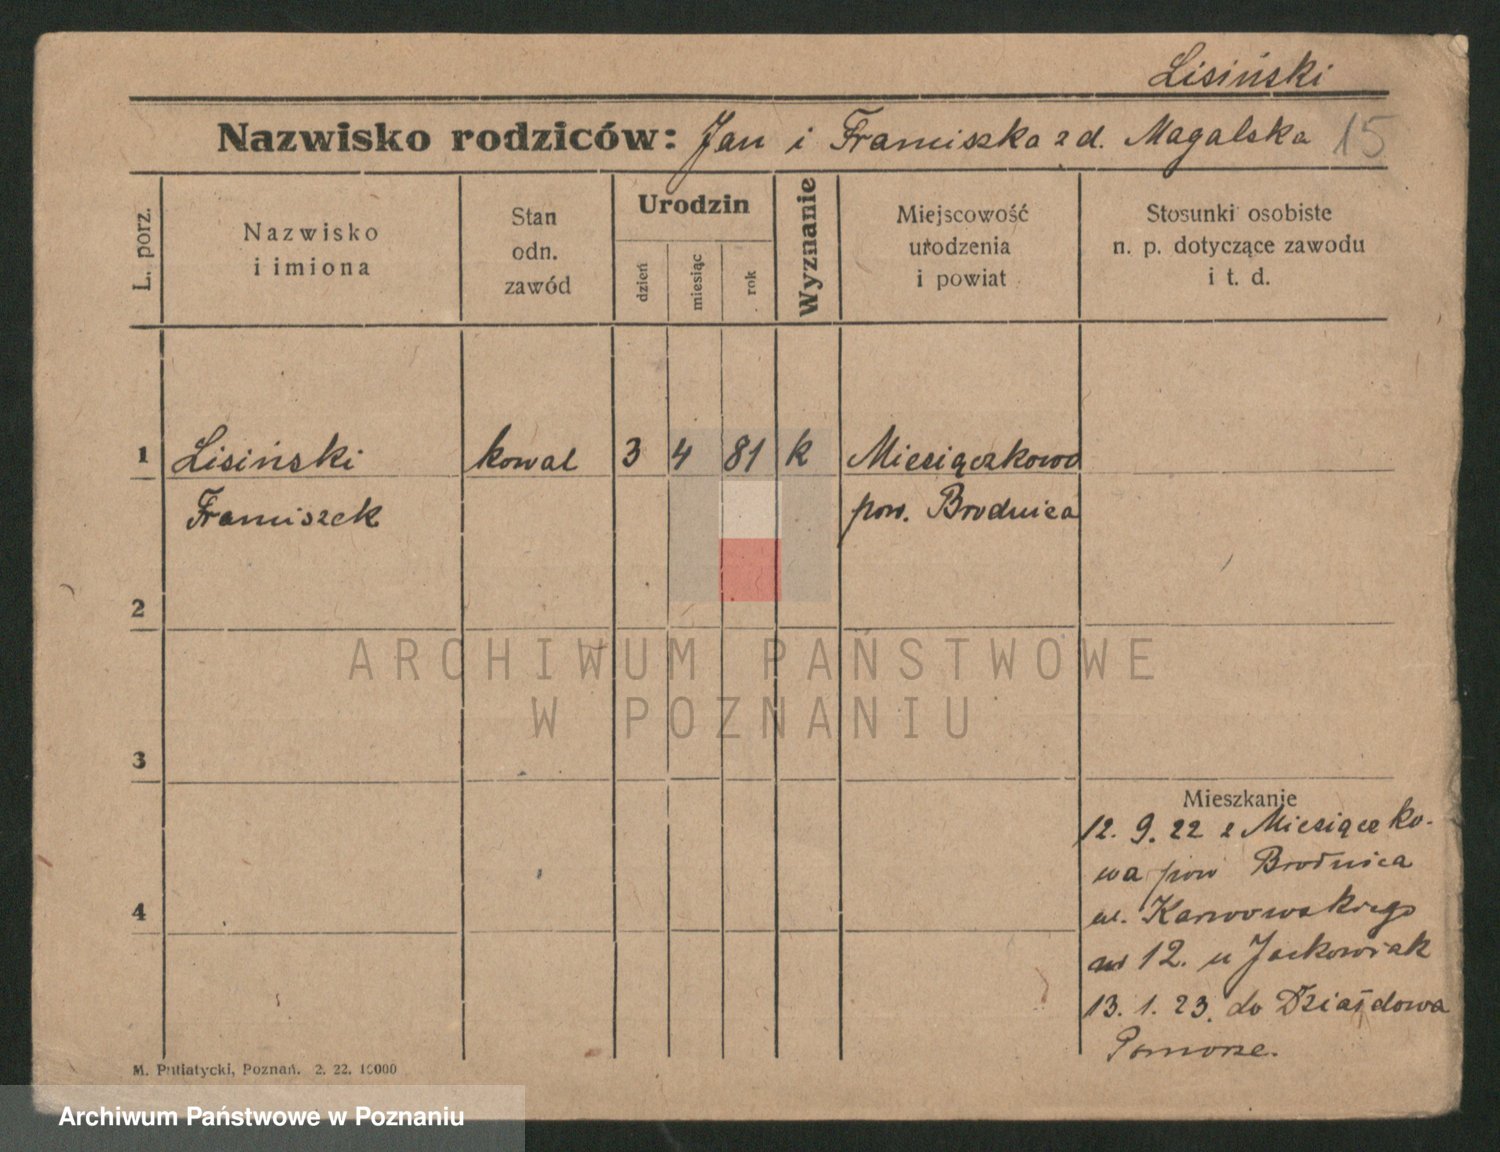 Lisiński
Nazwisko rodziców: Jan i Franciszka zd. Magalska 15
L. porz.
Nazwisko
i imiona
Stan
odn.
zawód
Urodzin
dzień
miesiąc
rok
Wyznanie
Miejscowość
urodzenia
i powiat
Stosunki osobiste
n. p. dotyczące zawodu
i t. d.
1 Lisiński kowal 3 4 81 k Miesiączkowo
Franciszek pow. Brodnica
2
ARCHIWUM PAŃSTWOWE
W POZNANIU
3
Mieszkanie
12. 9. 22 z Miesiączko-
wa pow Brodnica
ul. Karwowskiego
12. u Jackowiak
4
13. 1. 23. do Działdowa
Pomorze.
M. Putiatycki, Poznań. 2. 22. 10000
Archiwum Państwowe w Poznaniu